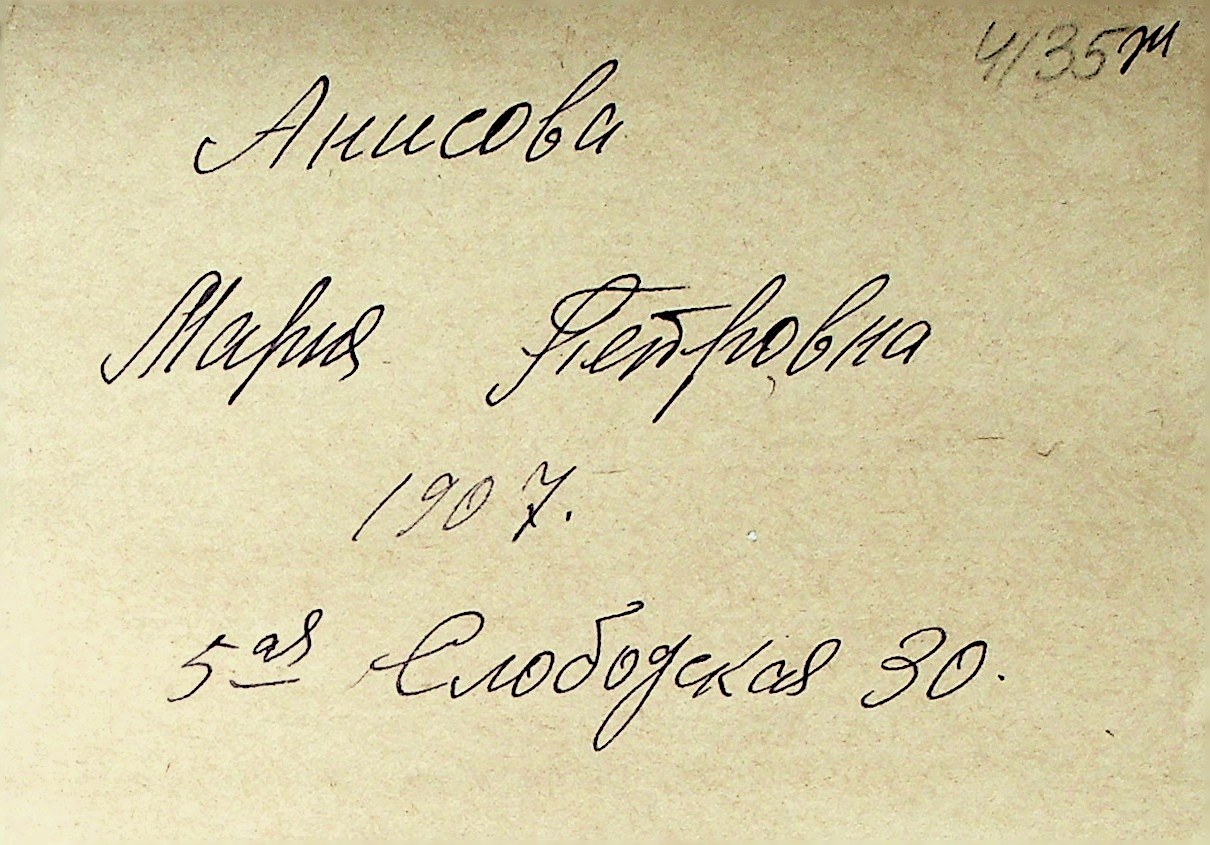 4135ж
Анисова
Мария Петровна
1907.
5ая Слободская 30.